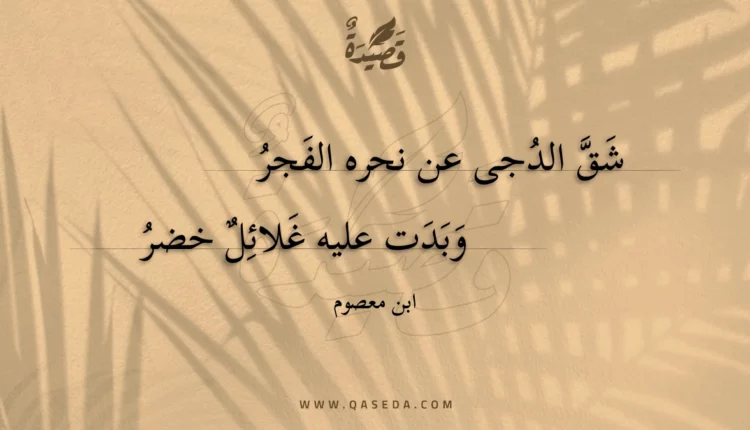 قَصِيدَةٌ
شَقَّ الدُجى عن نحره الفَجرُ
وَبَدَت عليه غَلائِلٌ خضرُ
ابن معصوم
WWW.QASEDA.COM